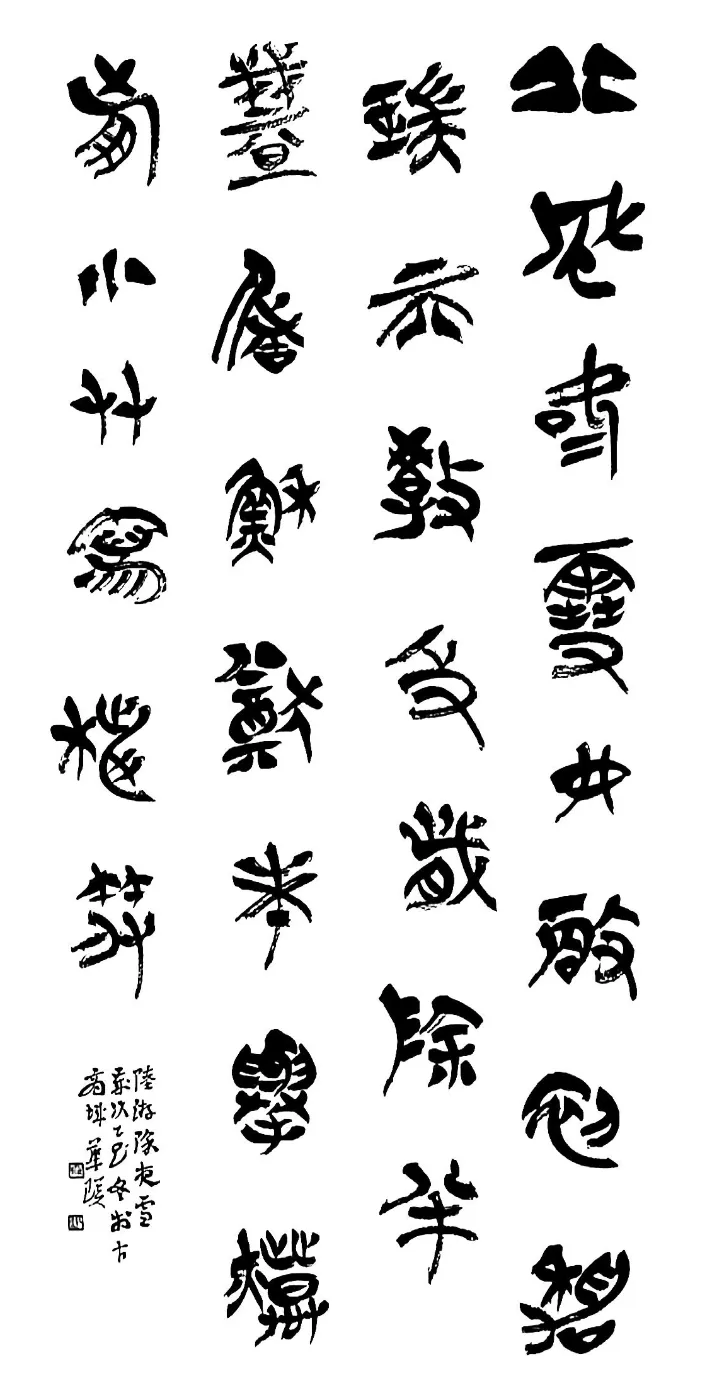 北風吹雪四更初嘉
瑞天教及歲除半
盞屠蘇猶未舉燈
前小草寫桃符
陸游除夜雪
歲次乙巳冬於古
高 華